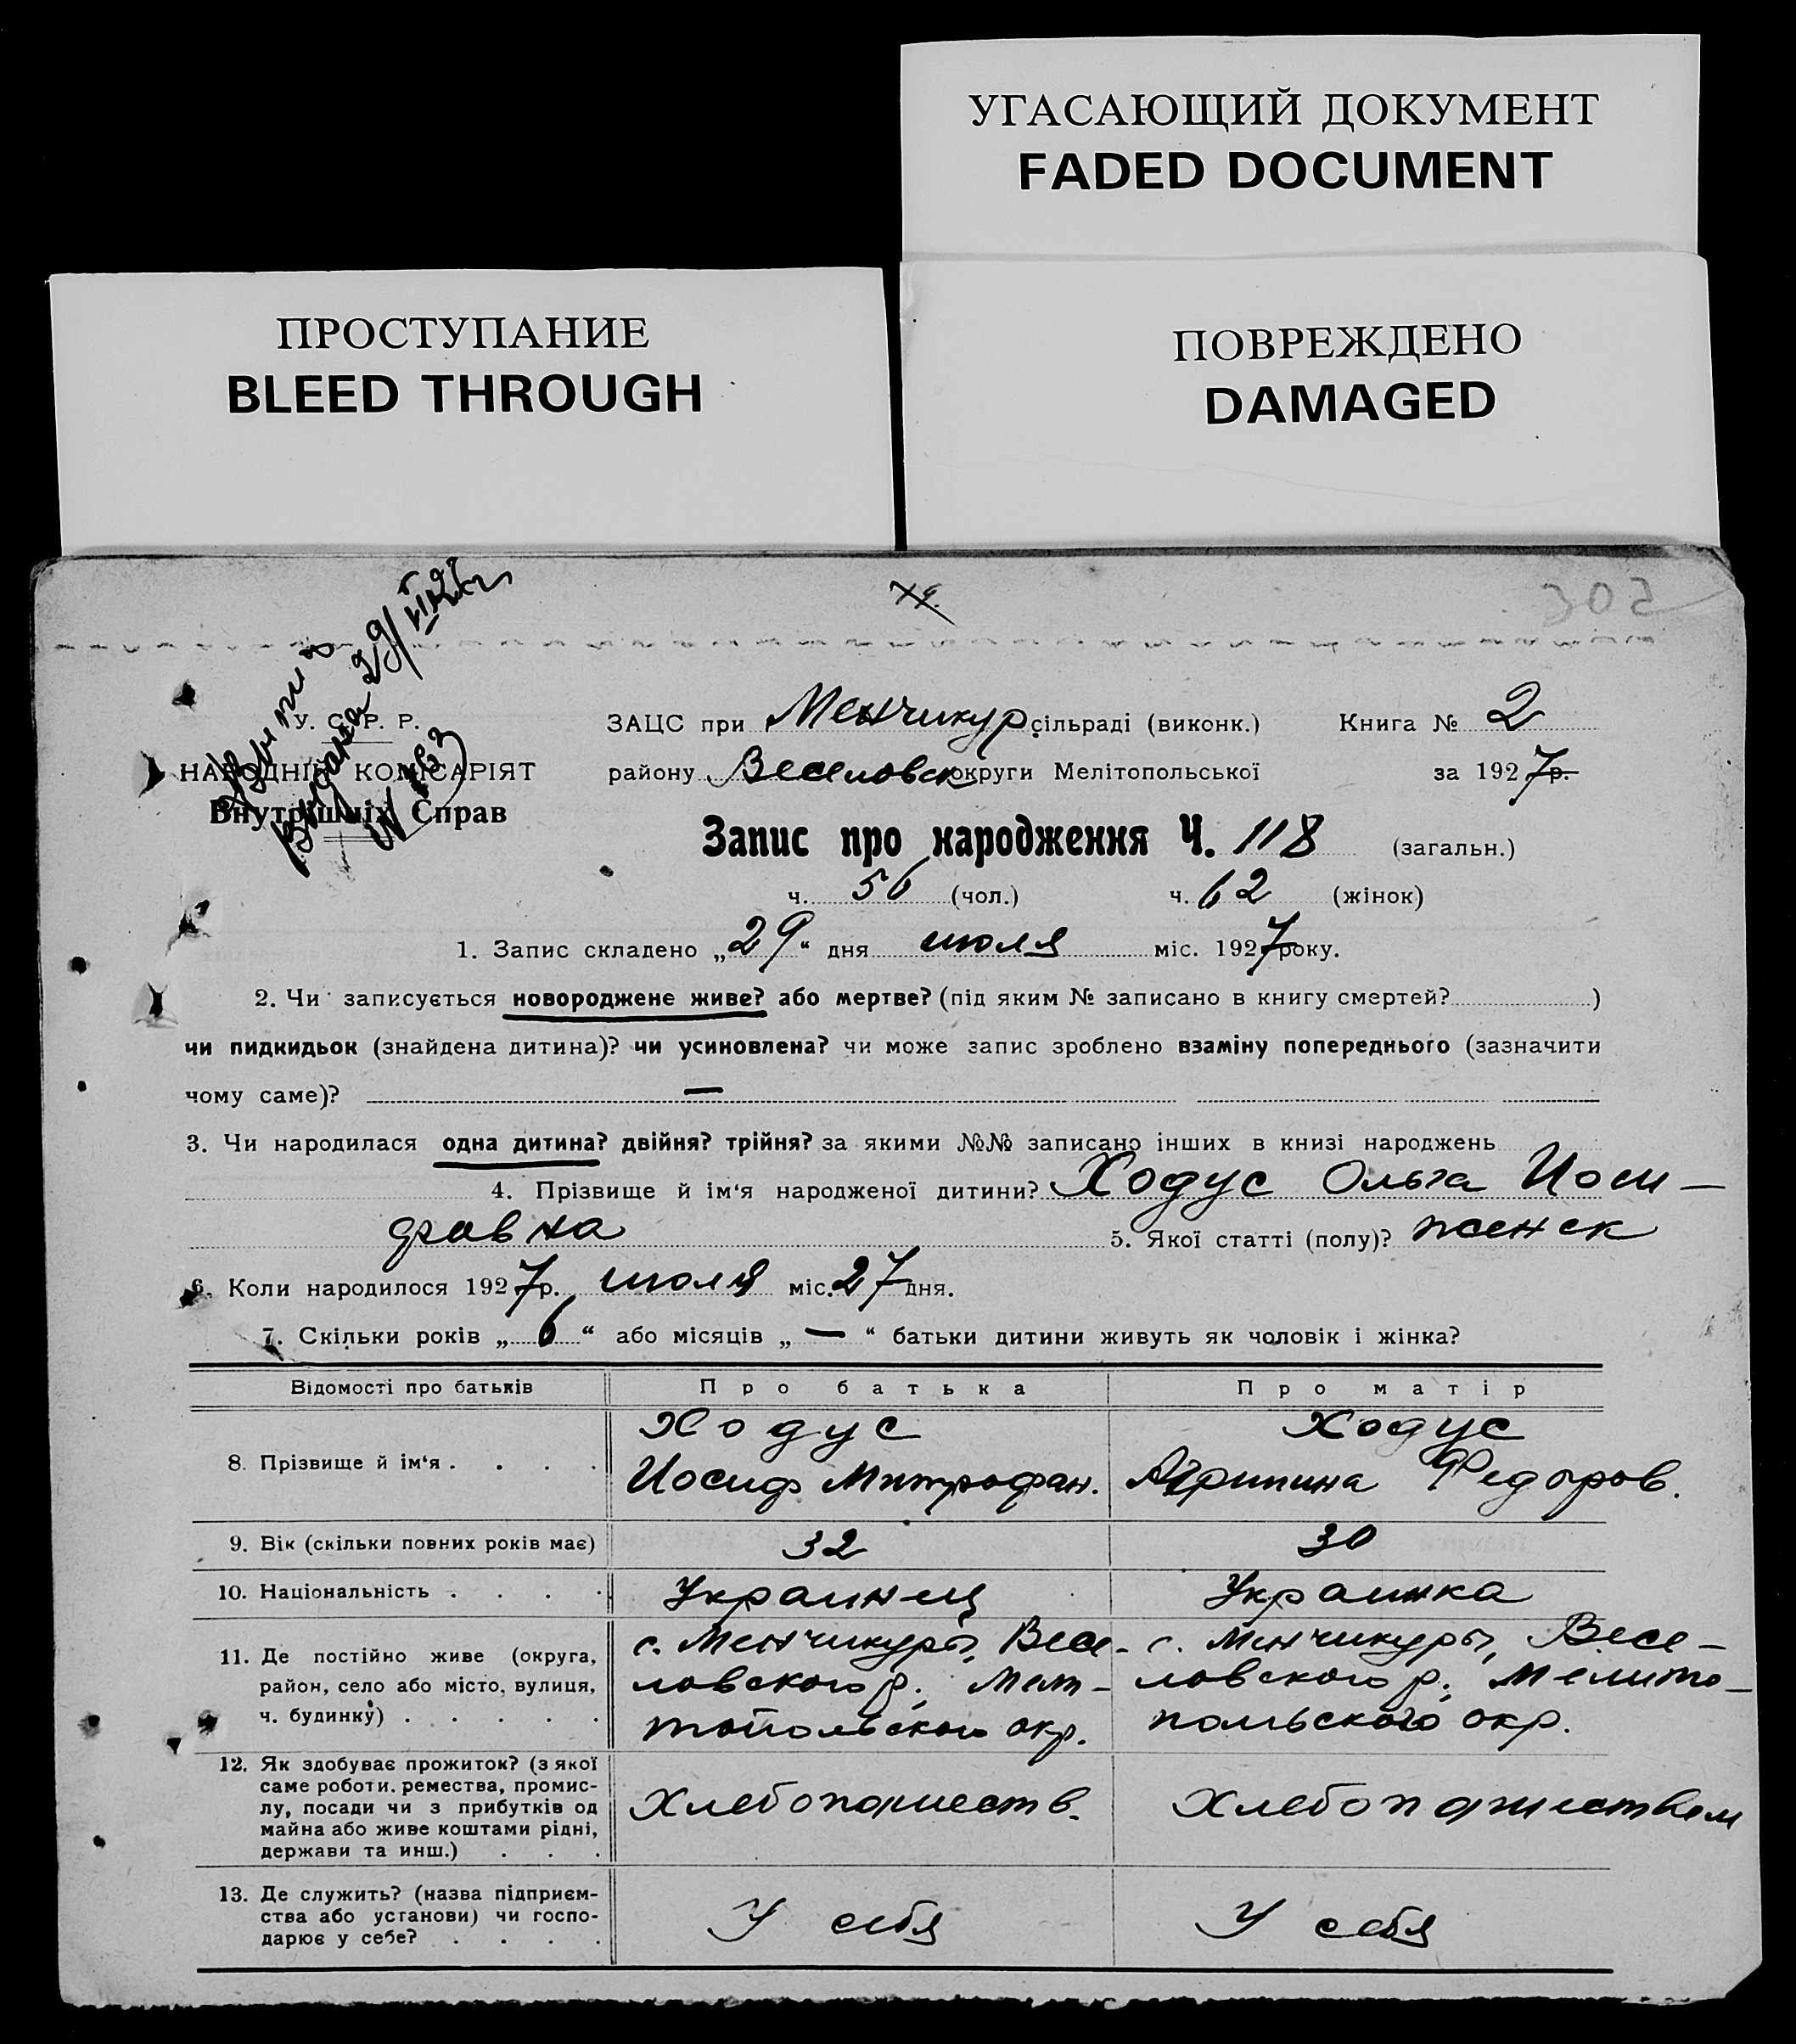 УГАСАЮЩИЙ ДОКУМЕНТ
FADED DOCUMENT
ПРОСТУПАНИЕ
BLEED THROUGH
ПОВРЕЖДЕНО
DAMAGED
У. С. Р. Р.
НАРОДНІЙ КОМІСАРІЯТ
Внутрішніх Справ
29/VII 27
ЗАЦС при Менчикур сільраді (виконк.) Книга № 2
району Веселовск округи Мелітопольської за 1927 р.
Запис про народження Ч. 118 (загальн.)
ч. 56 (чол.) ч. 62 (жінок)
1. Запис складено „29“ дня июля міс. 1927 року.
2. Чи записується новороджене живе? або мертве? (під яким № записано в книгу смертей? )
чи пидкидьок (знайдена дитина)? чи усиновлена? чи може запис зроблено взаміну попереднього (зазначити
чому саме)? —
3. Чи народилася одна дитина? двійня? трійня? за якими №№ записано інших в книзі народжень
4. Прізвище й ім‘я народженої дитини? Ходус Ольга Иоси-
фовна 5. Якої статті (полу)? женск
6. Коли народилося 1927 р. июля міс. 27 дня.
7. Скільки років „6“ або місяців „—“ батьки дитини живуть як чоловік і жінка?
Відомості про батьків Про батька Про матір
8. Прізвище й ім‘я . . . . Ходус Иосиф Митрофан. Ходус Агрипина Федоров.
9. Вік (скільки повних років має) 32 30
10. Національність . . . . Украинец Украинка
11. Де постійно живе (округа, с. Менчикуры, Весе- с. Менчикуры, Весе-
район, село або місто, вулиця, ловского р. Мели- ловского р. Мелито-
ч. будинку) . . . . . топольского окр. польского окр.
12. Як здобуває прожиток? (з якої
саме роботи, ремества, промис-
лу, посади чи з прибутків од Хлебопашеств. Хлебопашеством
майна або живе коштами рідні,
держави та инш.) . . .
13. Де служить? (назва підприєм-
ства або установи) чи госпо- У себя У себя
дарює у себе? . . . .